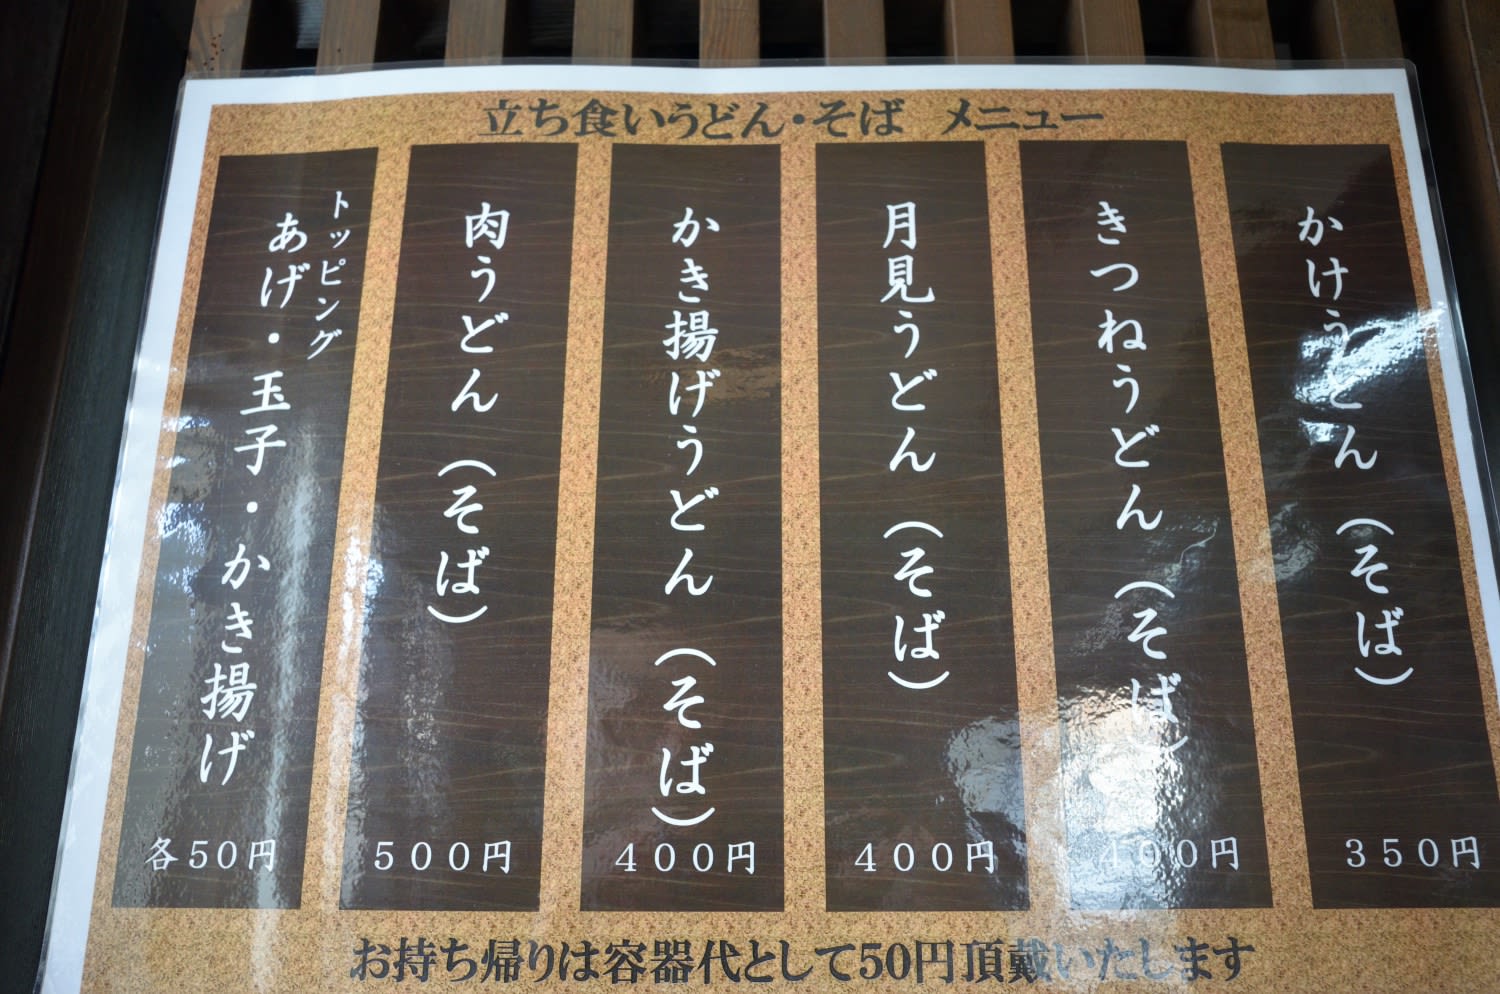 立ち食いうどん・そば メニュー
かけうどん（そば）
350円
きつねうどん（そば）
400円
月見うどん（そば）
400円
かき揚げうどん（そば）
400円
肉うどん（そば）
500円
トッピング
あげ・玉子・かき揚げ
各50円
お持ち帰りは容器代として50円頂戴いたします